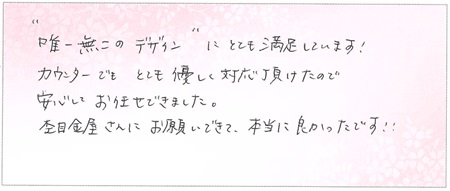 "唯一無二のデザイン"にとても満足しています!
カウンターでもとても優しく対応頂けたので
安心してお任せできました。
杢目金屋さんにお願いできて、本当に良かったです!!